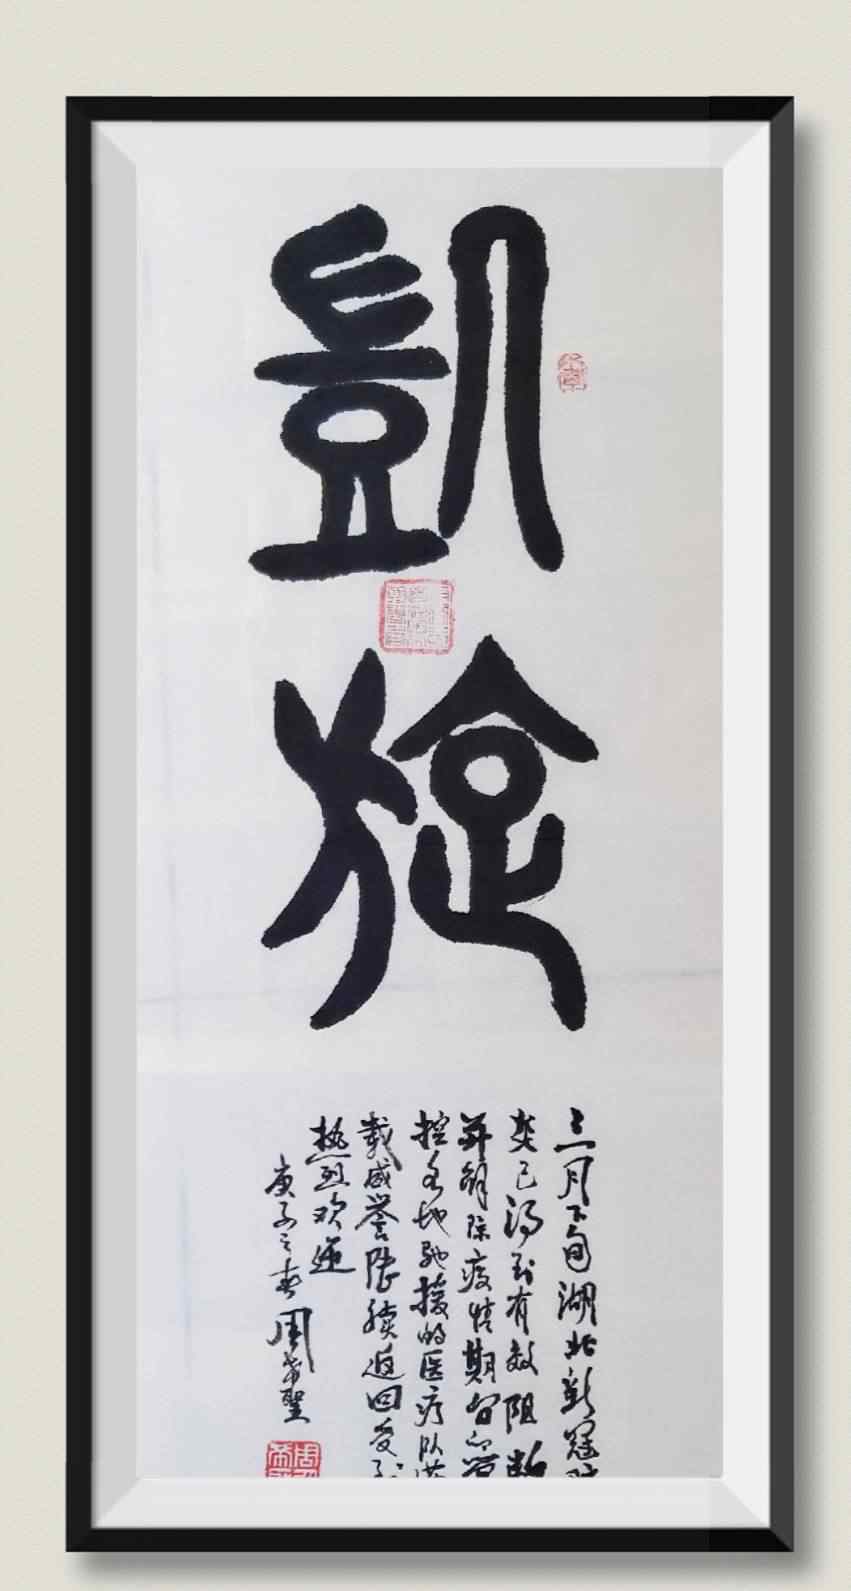 凱
旋
三月下旬湖北新冠
炎已得到有效阻断
并解除疫情期
控各地驰援的医疗队
载盛誉陆续返回受
热烈欢迎
庚子之春周希聖